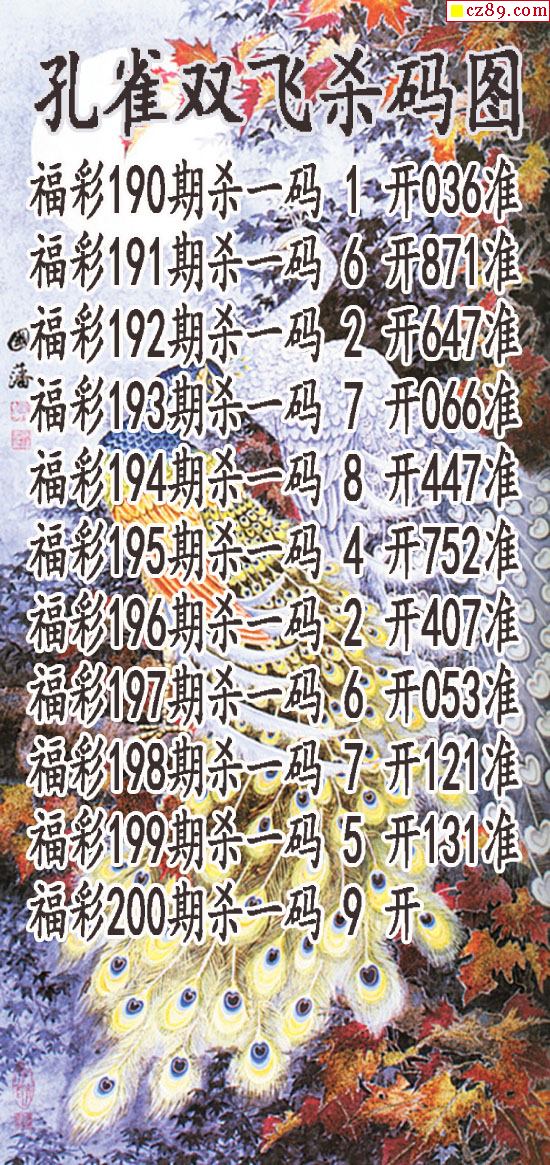 cz89.com
孔雀双飞杀码图
福彩190期杀一码 1 开036准
福彩191期杀一码 6 开871准
福彩192期杀一码 2 开647准
福彩193期杀一码 7 开066准
福彩194期杀一码 8 开447准
福彩195期杀一码 4 开752准
福彩196期杀一码 2 开407准
福彩197期杀一码 6 开053准
福彩198期杀一码 7 开121准
福彩199期杀一码 5 开131准
福彩200期杀一码 9 开